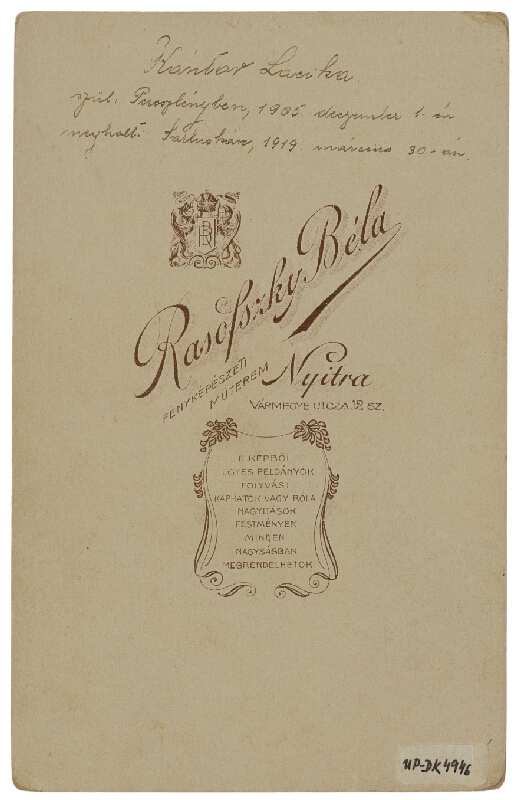 Kántor Lacika.
szül. Pereszlényben, 1905 deczember 1.-én
meghalt 1919. március 30-án.
BR
Rasofszky Béla
FÉNYKÉPÉSZETI
MŰTEREM
Nyitra
VÁRMEGYE UTCZA 12 SZ.
E KÉPBŐL
EGYES PÉLDÁNYOK
FOLYVÁST
KAPHATÓK VAGY RÓLA
NAGYÍTÁSOK
FESTMÉNYEK
MINDEN
NAGYSÁGBAN
MEGRENDELHETŐK
UP-DK 4946